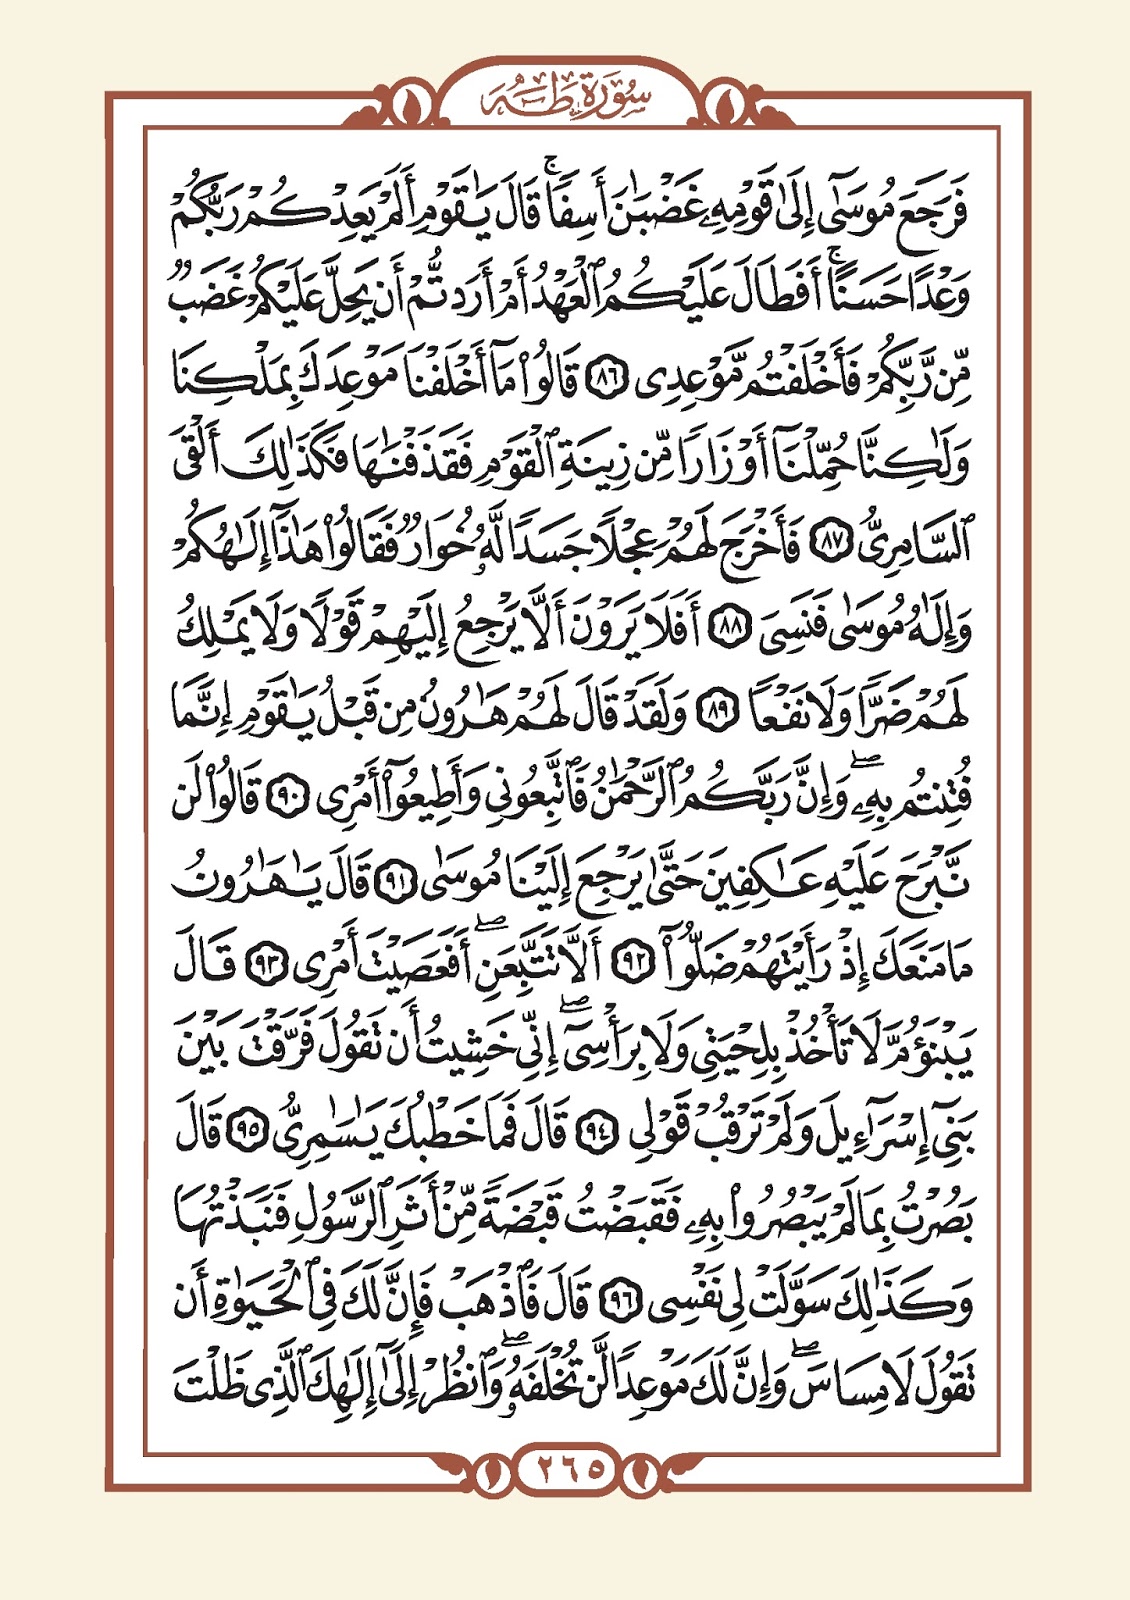 سُورَةُ طه
فَرَجَعَ مُوسَىٰٓ إِلَىٰ قَوْمِهِۦ غَضْبَٰنَ أَسِفًاۚ قَالَ يَٰقَوْمِ أَلَمْ يَعِدْكُمْ رَبُّكُمْ
وَعْدًا حَسَنًاۚ أَفَطَالَ عَلَيْكُمُ ٱلْعَهْدُ أَمْ أَرَدتُّمْ أَن يَحِلَّ عَلَيْكُمْ غَضَبٌ
مِّن رَّبِّكُمْ فَأَخْلَفْتُم مَّوْعِدِى ٨٦ قَالُوا۟ مَآ أَخْلَفْنَا مَوْعِدَكَ بِمَلْكِنَا
وَلَٰكِنَّا حُمِّلْنَآ أَوْزَارًا مِّن زِينَةِ ٱلْقَوْمِ فَقَذَفْنَٰهَا فَكَذَٰلِكَ أَلْقَى
ٱلسَّامِرِىُّ ٨٧ فَأَخْرَجَ لَهُمْ عِجْلًا جَسَدًا لَّهُۥ خُوَارٌ فَقَالُوا۟ هَٰذَآ إِلَٰهُكُمْ
وَإِلَٰهُ مُوسَىٰ فَنَسِىَ ٨٨ أَفَلَا يَرَوْنَ أَلَّا يَرْجِعُ إِلَيْهِمْ قَوْلًا وَلَا يَمْلِكُ
لَهُمْ ضَرًّا وَلَا نَفْعًا ٨٩ وَلَقَدْ قَالَ لَهُمْ هَٰرُونُ مِن قَبْلُ يَٰقَوْمِ إِنَّمَا
فُتِنتُم بِهِۦۖ وَإِنَّ رَبَّكُمُ ٱلرَّحْمَٰنُ فَٱتَّبِعُونِى وَأَطِيعُوٓا۟ أَمْرِى ٩٠ قَالُوا۟ لَن
نَّبْرَحَ عَلَيْهِ عَٰكِفِينَ حَتَّىٰ يَرْجِعَ إِلَيْنَا مُوسَىٰ ٩١ قَالَ يَٰهَٰرُونُ
مَا مَنَعَكَ إِذْ رَأَيْتَهُمْ ضَلُّوٓا۟ ٩٢ أَلَّا تَتَّبِعَنِۖ أَفَعَصَيْتَ أَمْرِى ٩٣ قَالَ
يَبْنَؤُمَّ لَا تَأْخُذْ بِلِحْيَتِى وَلَا بِرَأْسِىٓۖ إِنِّى خَشِيتُ أَن تَقُولَ فَرَّقْتَ بَيْنَ
بَنِىٓ إِسْرَٰٓءِيلَ وَلَمْ تَرْقُبْ قَوْلِى ٩٤ قَالَ فَمَا خَطْبُكَ يَٰسَٰمِرِىُّ ٩٥ قَالَ
بَصُرْتُ بِمَا لَمْ يَبْصُرُوا۟ بِهِۦ فَقَبَضْتُ قَبْضَةً مِّنْ أَثَرِ ٱلرَّسُولِ فَنَبَذْتُهَا
وَكَذَٰلِكَ سَوَّلَتْ لِى نَفْسِى ٩٦ قَالَ فَٱذْهَبْ فَإِنَّ لَكَ فِى ٱلْحَيَوٰةِ أَن
تَقُولَ لَا مِسَاسَۖ وَإِنَّ لَكَ مَوْعِدًا لَّن تُخْلَفَهُۥۖ وَٱنظُرْ إِلَىٰٓ إِلَٰهِكَ ٱلَّذِى ظَلْتَ
٢٦٥